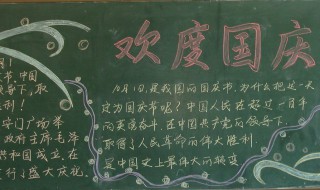 欢度国庆
月!
节,中国
导下,取
利!
安门广场举
政府主席毛泽
共和国成立,在
行了盛大庆礼.
十月1日,是我国的国庆节,为什么把这一天
定为国庆节呢?中国人民在经过一百年
的英勇奋斗,在中国共产党的领导下,
取得了人民革命的伟大胜利
是中国史上最伟大的转变